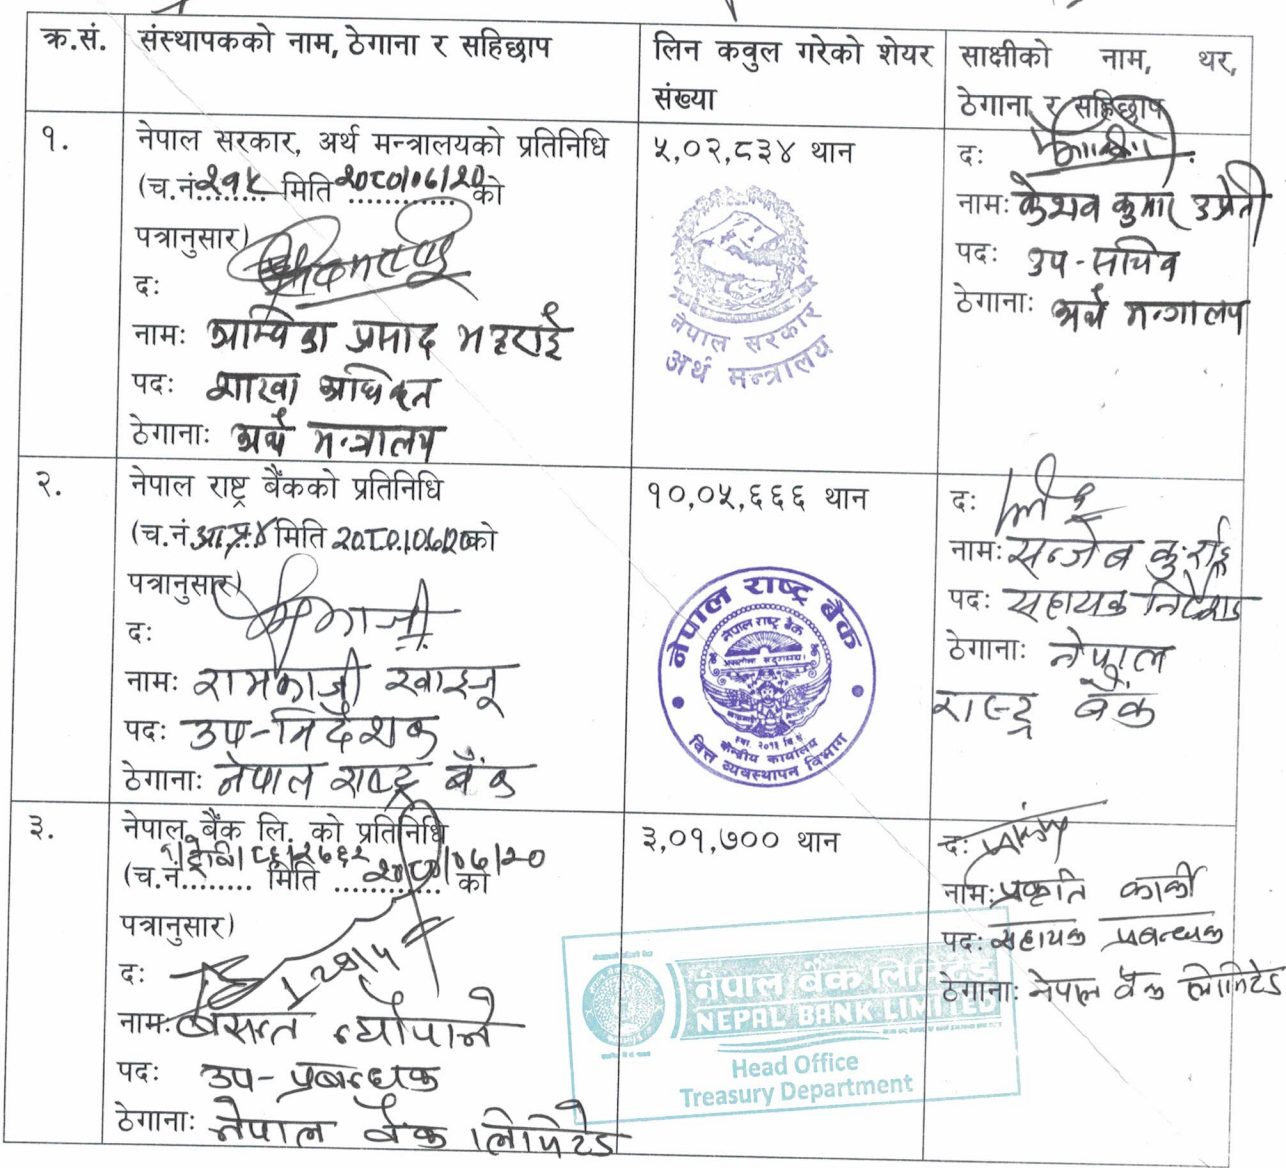 क्र.सं.
संस्थापकको नाम, ठेगाना र सहिछाप
लिन कवुल गरेको शेयर
संख्या
साक्षीको नाम, थर,
ठेगाना र सहिछाप
१.
नेपाल सरकार, अर्थ मन्त्रालयको प्रतिनिधि
(च.नं २१५ मिति २०८०/०६/२० को
पत्रानुसार)
दः
नामः अम्विका प्रसाद भट्टराई
पदः शाखा अधिकृत
ठेगानाः अर्थ मन्त्रालय
५,०२,८३४ थान
नेपाल सरकार
अर्थ मन्त्रालय
दः
नामः केशव कुमार उप्रेती
पदः उप-सचिव
ठेगानाः अर्थ मन्त्रालय
२.
नेपाल राष्ट्र बैंकको प्रतिनिधि
(च.नं मिति २०८०।०६।२० को
पत्रानुसार)
दः
नामः रामकाजी ख्वाउजू
पदः उप-निर्देशक
ठेगानाः नेपाल राष्ट्र बैंक
१०,०५,६६६ थान
नेपाल राष्ट्र बैंक
नेपाल राष्ट्र बैंक
केन्द्रीय कार्यालय
वित्त व्यवस्थापन विभाग
दः
नामः सन्जेव कु.
पदः सहायक निर्देशक
ठेगानाः नेपाल
राष्ट्र बैंक
३.
नेपाल बैंक लि. को प्रतिनिधि
(च.नं........ मिति २०८०/०६/२० को
पत्रानुसार)
दः
नामः बसन्त न्यौपाने
पदः उप-प्रबन्धक
ठेगानाः नेपाल बैंक लिमिटेड
३,०१,७०० थान
नेपाल बैंक लिमिटेड
NEPAL BANK LIMITED
Head Office
Treasury Department
दः
नामः प्रकृति कार्की
पदः सहायक प्रबन्धक
ठेगानाः नेपाल बैंक लिमिटेड